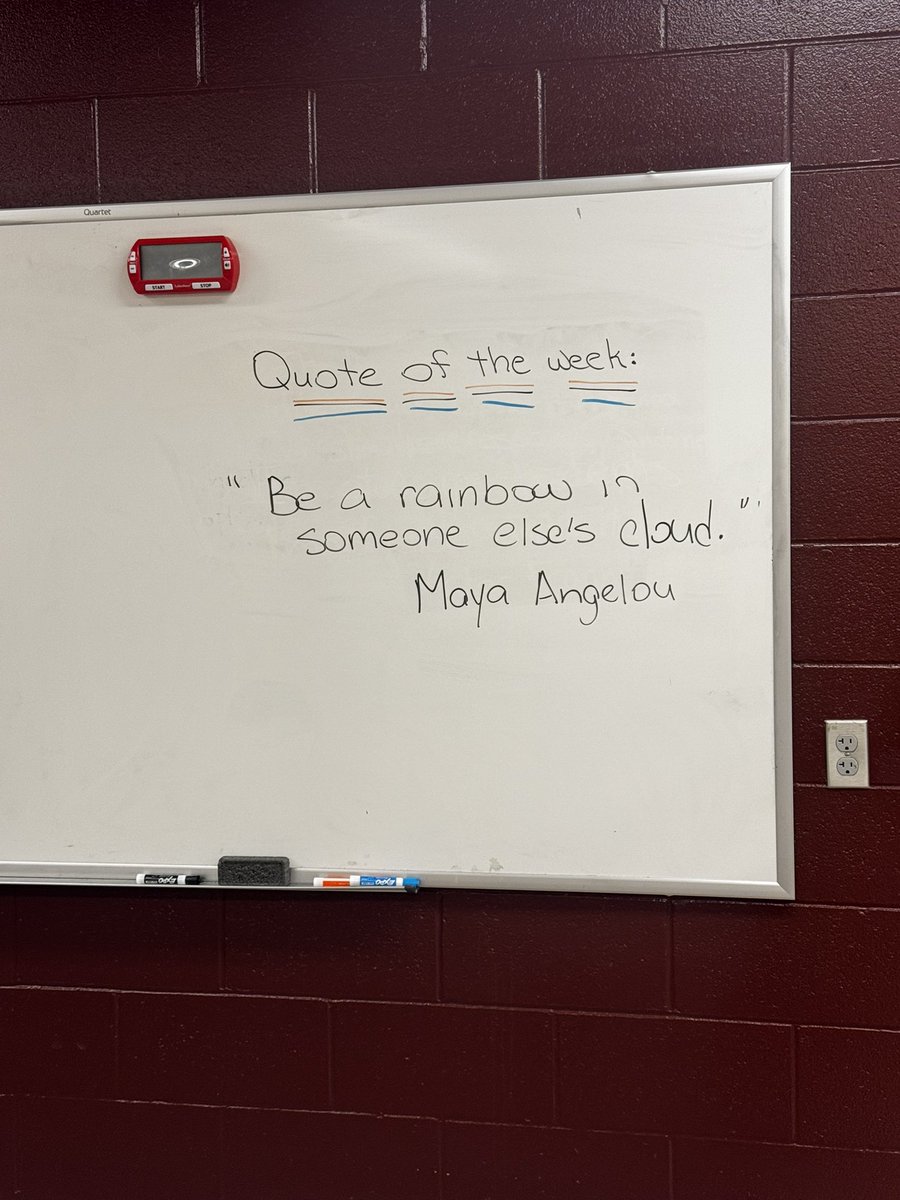 Quartet
START STOP
Quote of the week:
"Be a rainbow in
someone else's cloud."
Maya Angelou
EXPO
EXPO